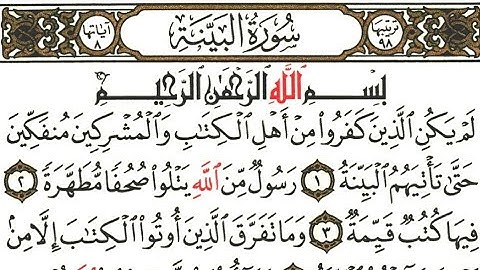 ترتيبها ٩٨
سُورَةُ البَيِّنَةِ
آياتها ٨
بِسْمِ اللَّهِ الرَّحْمَٰنِ الرَّحِيمِ
لَمْ يَكُنِ الَّذِينَ كَفَرُوا مِنْ أَهْلِ الْكِتَٰبِ وَالْمُشْرِكِينَ مُنفَكِّينَ
حَتَّىٰ تَأْتِيَهُمُ الْبَيِّنَةُ ١ رَسُولٌ مِّنَ اللَّهِ يَتْلُوا صُحُفًا مُّطَهَّرَةً ٢
فِيهَا كُتُبٌ قَيِّمَةٌ ٣ وَمَا تَفَرَّقَ الَّذِينَ أُوتُوا الْكِتَٰبَ إِلَّا مِنۢ